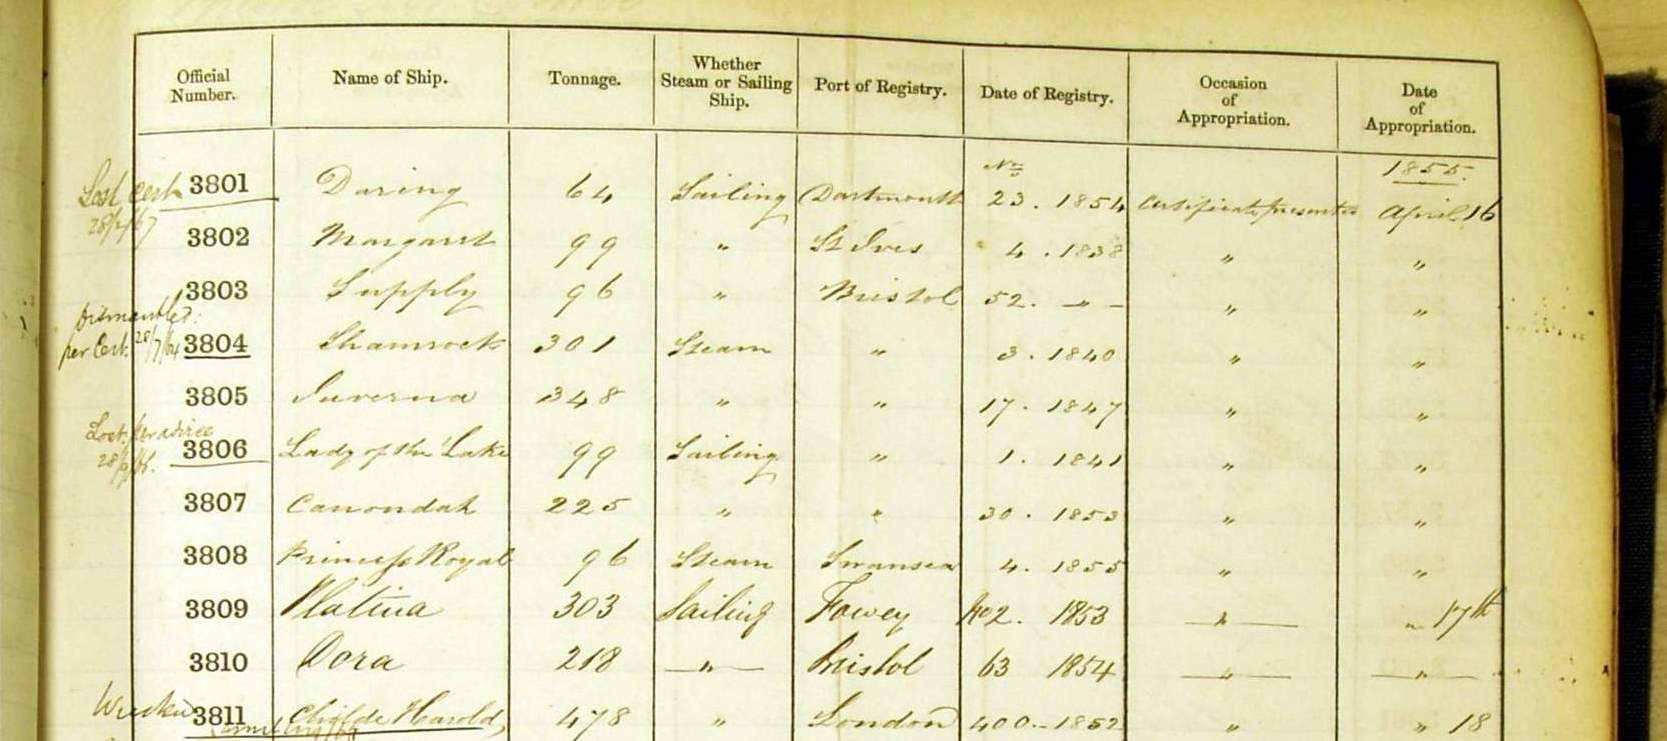 Official Number. Name of Ship. Tonnage. Whether Steam or Sailing Ship. Port of Registry. Date of Registry. Occasion of Appropriation. Date of Appropriation.
No 1855.
Lost Cert 3801 Daring 64 Sailing Dartmouth 23. 1854 Certificate presented April 16
3802 Margaret 99 " St Ives 4. 1838 " "
3803 Supply 96 " Bristol 52. " " "
Dismantled:
per Cert. 28/7/64 3804 Shamrock 301 Steam " 3. 1840 " "
3805 Juverna 348 " " 17. 1847 " "
Lost per advice
3806 Lady of the Lake 99 Sailing " 1. 1841 " "
3807 Canondah 225 " " 30. 1853 " "
3808 Princess Royal 96 Steam Swansea 4. 1855 " "
3809 Platina 303 Sailing Fowey No 2. 1853 " " 17th
3810 Dora 218 " Bristol 63 1854 " "
Wrecked 3811 Childe Harold 478 " London 400. 1852 " " 18